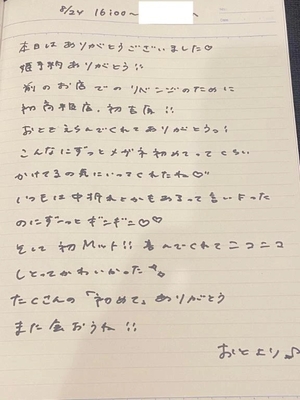 8/24 16:00~
本日はありがとうございました♡
姫予約ありがとう!!
前のお店でのリベンジのために
初高級店、初吉原!!
おとをえらんでくれてありがとうっ!
こんなにずっとメガネ初めてってくらい
かけてるの気にいってくれたね♡
いつもは中折れとかもあるって言いよった
のにずっとギンギン♡♡
そして初Mット!! 喜んでくれてニコニコ
しとってかわいかった
たくさんの「初めて」ありがとう
また会おうね!!
おとより♪